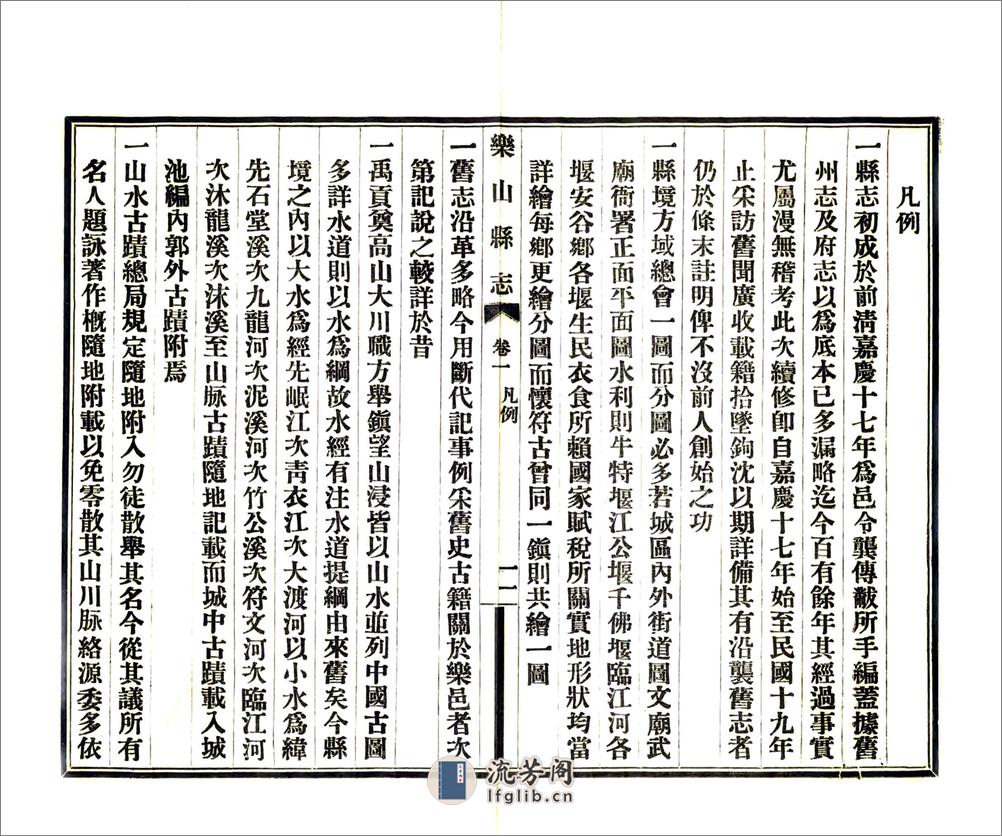 凡例
一縣志初成於前淸嘉慶十七年爲邑令龔傳黻所手編蓋據舊
州志及府志以爲底本已多漏略迄今百有餘年其經過事實
尤屬漫無稽考此次續修卽自嘉慶十七年始至民國十九年
止采訪舊聞廣收載籍拾墜鉤沈以期詳備其有沿襲舊志者
仍於條末註明俾不沒前人創始之功
一縣境方域總會一圖而分圖必多若城區內外街道圖文廟武
廟衙署正面平面圖水利則牛特堰江公堰千佛堰臨江河各
堰安谷鄉各堰生民衣食所賴國家賦稅所關實地形狀均當
詳繪每鄉更繪分圖而懷符古曾同一鎭則共繪一圖
樂山縣志
卷一
凡例
二
一舊志沿革多略今用斷代記事例采舊史古籍關於樂邑者次
第記說之較詳於昔
一禹貢奠高山大川職方舉鎭望山浸皆以山水並列中國古圖
多詳水道則以水爲綱故水經有注水道提綱由來舊矣今縣
境之內以大水爲經先岷江次靑衣江次大渡河以小水爲緯
先石堂溪次九龍河次泥溪河次竹公溪次符文河次臨江河
次沐龍溪次沫溪至山脉古蹟隨地記載而城中古蹟載入城
池編內郭外古蹟附焉
一山水古蹟總局規定隨地附入勿徒散舉其名今從其議所有
名人題詠著作槪隨地附載以免零散其山川脉絡源委多依
流芳阁
lfglib.cn